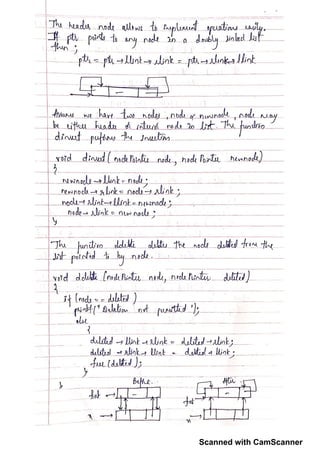 The header node allows to implement operations easily.
If ptr points to any node in a doubly linked list
then ;
ptr = ptr → llink → rlink = ptr → rlink → llink
Assume we have two nodes, node & newnode, node may
be either header or interior node in list. The function
dinsert performs the insertion
void dinsert ( nodePointer node, nodePointer newnode)
{
newnode → llink = node ;
newnode → rlink = node → rlink ;
node → rlink → llink = newnode ;
node → rlink = newnode ;
}
The function ddelete deletes the node deleted from the
list pointed to by node.
void ddelete (nodePointer node, nodePointer deleted)
{
if (node == deleted )
printf (" Deletion not permitted ");
else
{
deleted → llink → rlink = deleted → rlink ;
deleted → rlink → llink = deleted → llink ;
free (deleted );
}
}
Before. After
Scanned with CamScanner